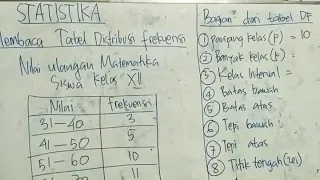 STATISTIKA
Membaca Tabel Distribusi frekuensi
Nilai ulangan Matematika
Siswa Kelas XII
Nilai frekuensi
31-40 3
41-50 5
51-60 10
11
Bagian² dari tabel DF
① panjang kelas (P) = 10
② Banyak kelas (k) :
③ Kelas Interval =
④ Batas bawah
⑤ Batas atas
⑥ Tepi bawah
⑦ Tepi atas
⑧ Titik tengah (xi)